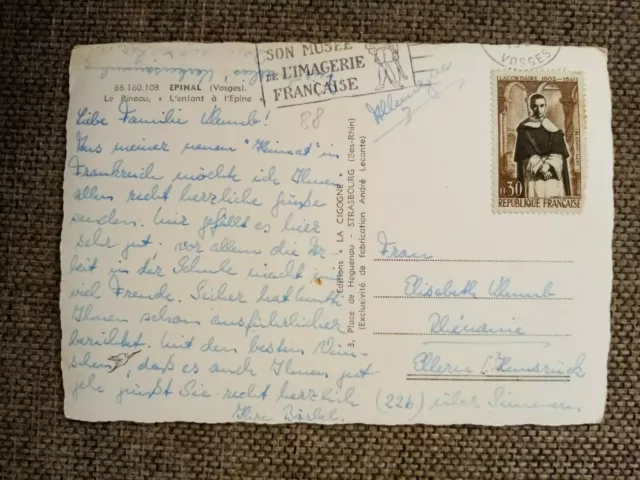 SON MUSÉE
DE L'IMAGERIE
FRANÇAISE
VOSGES
88.160.108 EPINAL (Vosges).
Le Pineau, « L'enfant à l'Epine »
88
Allemagne
LACORDAIRE 1802-1861
0,30
REPUBLIQUE FRANÇAISE
Liebe Familie
Aus meiner neuen "Heimat" in
Frankreich möchte ich Ihnen
allen recht herzliche Grüße
senden. Mir gefällt es hier
sehr gut. Vor allem die Ar-
beit in der Schule macht mir
viel Freude. Sicher hat
Ihnen schon ausführlicher
berichtet. Mit den besten Wün-
schen, daß es auch Ihnen gut
gehe grüßt Sie recht herzlich
Ihre Bärbel.
Editions " LA CIGOGNE "
3, Place de Haguenau - STRASBOURG (Bas-Rhin)
(Exclusivité de fabrication André Leconte)
Frau
Elisabeth
Ellern / Hunsrück
(22b) über Simmern